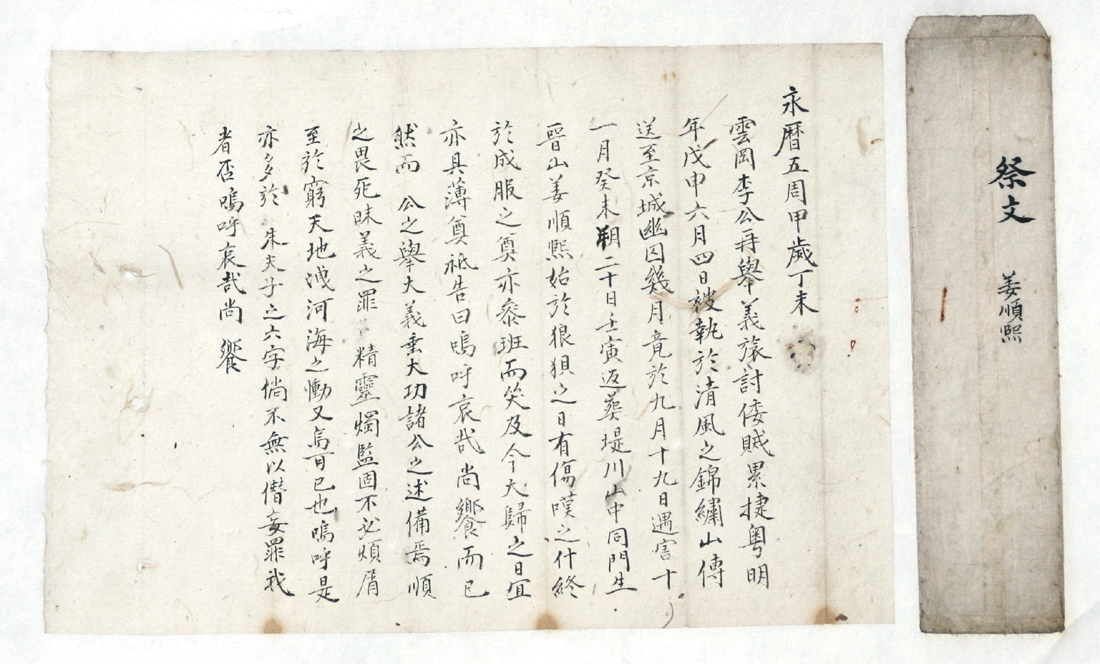 永曆五周甲歲丁未
雲岡李公再舉義旅討倭賊累捷粤明
年戊申六月四日被執於清風之錦繡山傳
送至京城幽囚幾月竟於九月十九日遇害十
一月癸未朔二十日壬寅返葬堤川山中同門生
晉山姜順熙始於狼狽之日有傷嘆之什終
於成服之奠亦叅班而哭及今大歸之日宜
亦具薄奠祗告曰嗚呼哀哉尚饗而已
然而 公之舉大義垂大功諸公之述備焉順
之畏死昧義之罪 精靈燭監固不必煩屑
至於窮天地洩河海之慟又烏可已也嗚呼是
亦多於 朱夫子之六字倘不無以僭妄罪我
者否嗚呼哀哉尚 饗
祭文 姜順熙